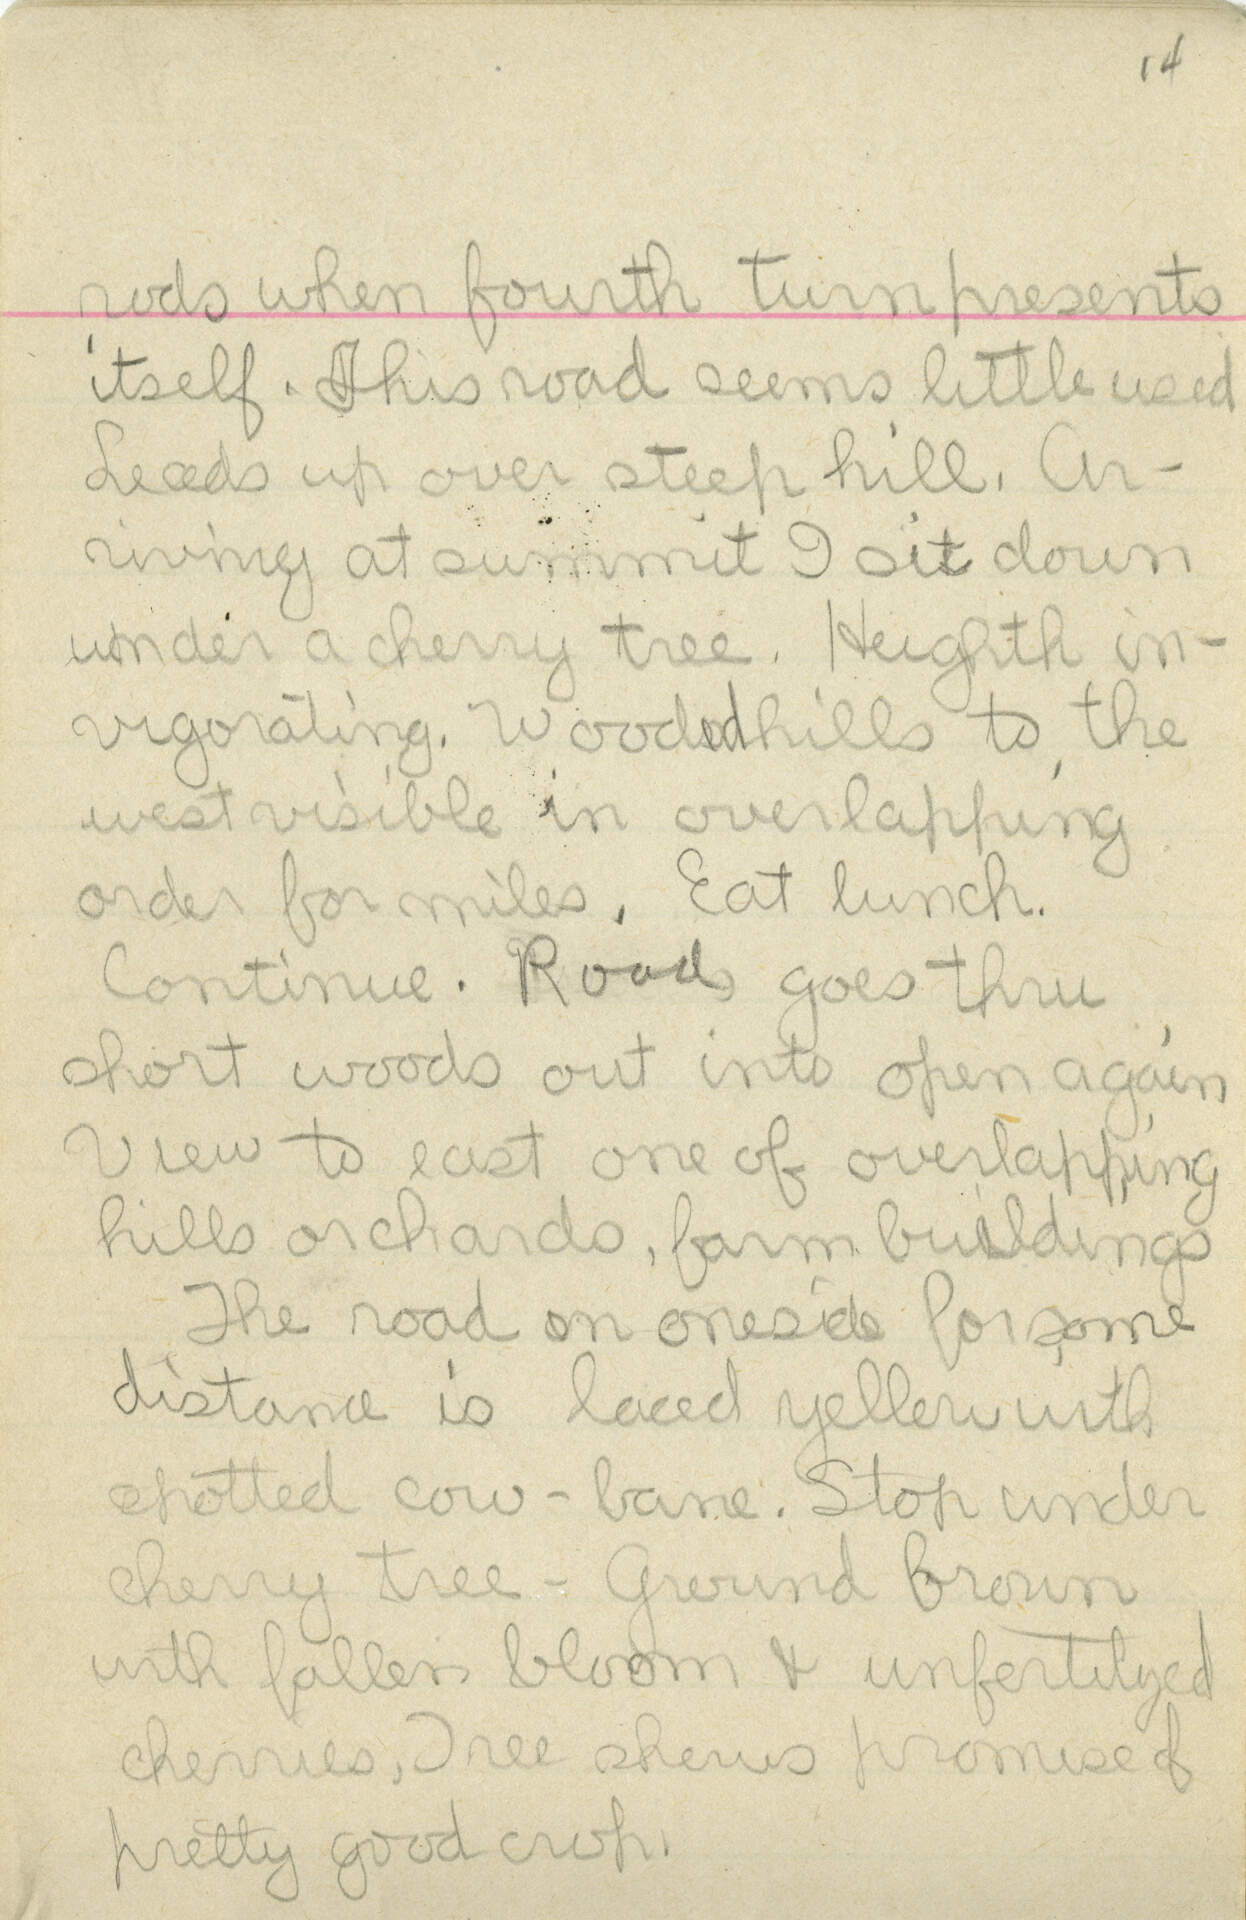 14
rods when fourth turn presents
itself. This road seems little used
Leads up over steep hill. Ar-
riving at summit I sit down
under a cherry tree. Heighth in-
vigorating. Wooded hills to the
west visible in overlapping
order for miles. Eat lunch.
Continue. Road goes thru
short woods out into open again
View to east one of overlapping
hills orchards, farm buildings
The road on one side for some
distance is laced yellow with
spotted cow-bane. Stop under
cherry tree - Ground brown
with fallen bloom & unfertilyzed
cherries. Tree shows promise of
pretty good crop.